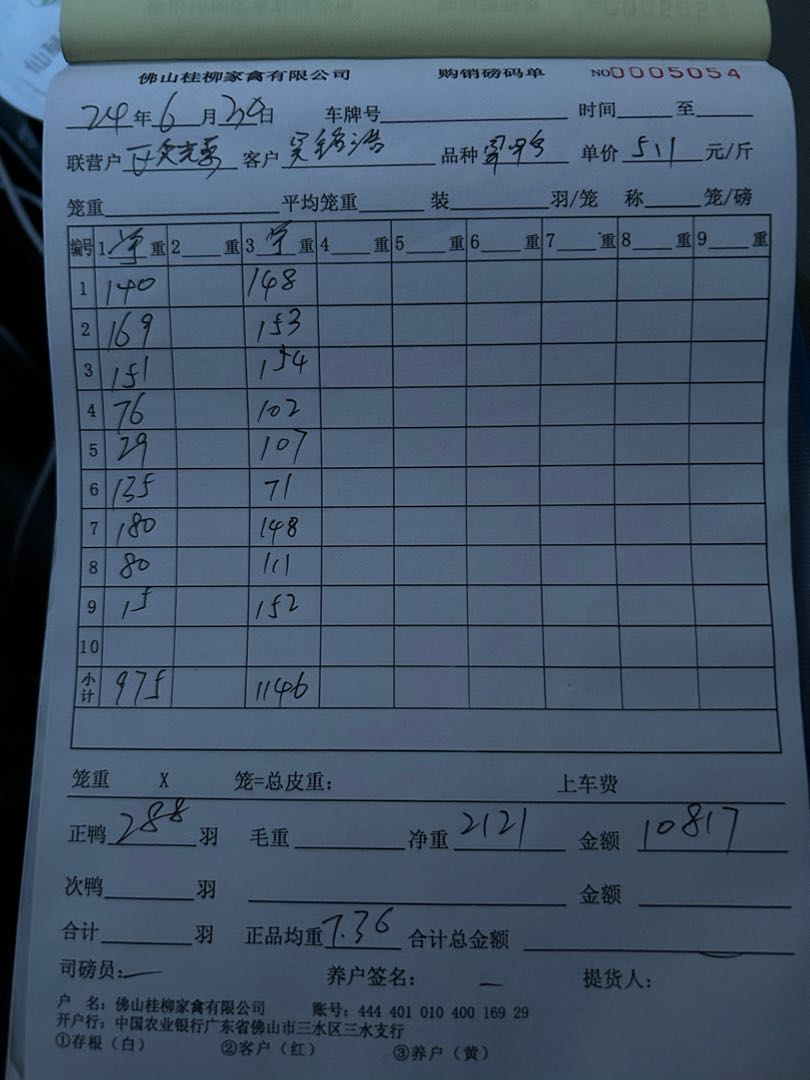 佛山桂柳家禽有限公司 购销磅码单 NO0005054
24年6月 日 车牌号 时间 至
联营户 客户 品种 单价 511 元/斤
笼重 平均笼重 装 羽/笼 称 笼/磅
编号 1 重 2 重 3 重 4 重 5 重 6 重 7 重 8 重 9 重
1 140 148
2 169 153
3 151 154
4 76 102
5 29 107
6 135 71
7 180 148
8 80 111
9 15 152
10
小计 975 1146
笼重 X 笼=总皮重: 上车费
正鸭 288 羽 毛重 净重 2121 金额 10817
次鸭 羽 金额
合计 羽 正品均重 7.36 合计总金额
司磅员: 养户签名: 提货人:
户 名: 佛山桂柳家禽有限公司 账号: 444 401 010 400 169 29
开户行: 中国农业银行广东省佛山市三水区三水支行
①存根(白) ②客户(红) ③养户(黄)